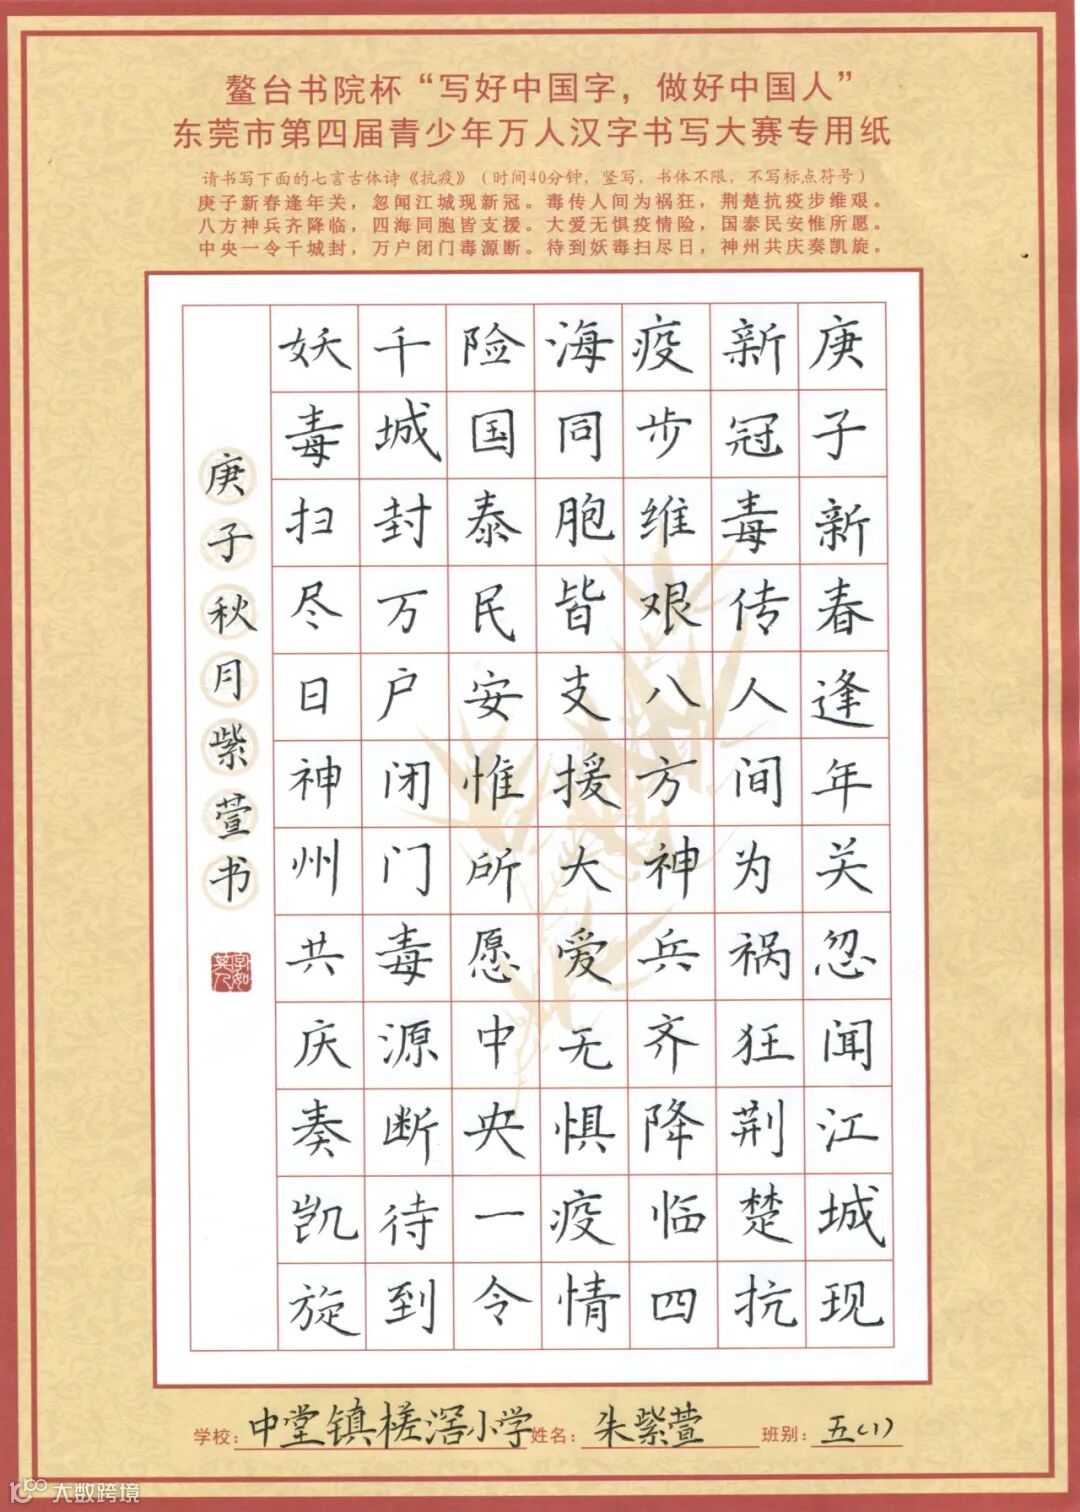 鳌台书院杯“写好中国字，做好中国人”
东莞市第四届青少年万人汉字书写大赛专用纸
请书写下面的七言古体诗《抗疫》（时间40分钟，竖写，书体不限，不写标点符号）
庚子新春逢年关，忽闻江城现新冠。毒传人间为祸狂，荆楚抗疫步维艰。
八方神兵齐降临，四海同胞皆支援。大爱无惧疫情险，国泰民安惟所愿。
中央一令千城封，万户闭门毒源断。待到妖毒扫尽日，神州共庆奏凯旋。
庚子新春逢年关忽闻江城现
新冠毒传人间为祸狂荆楚抗
疫步维艰八方神兵齐降临四
海同胞皆支援大爱无惧疫情
险国泰民安惟所愿中央一令
千城封万户闭门毒源断待到
妖毒扫尽日神州共庆奏凯旋
庚子秋月紫萱书
学校：中堂镇槎滘小学 姓名：朱紫萱 班别：五(1)
大数跨境